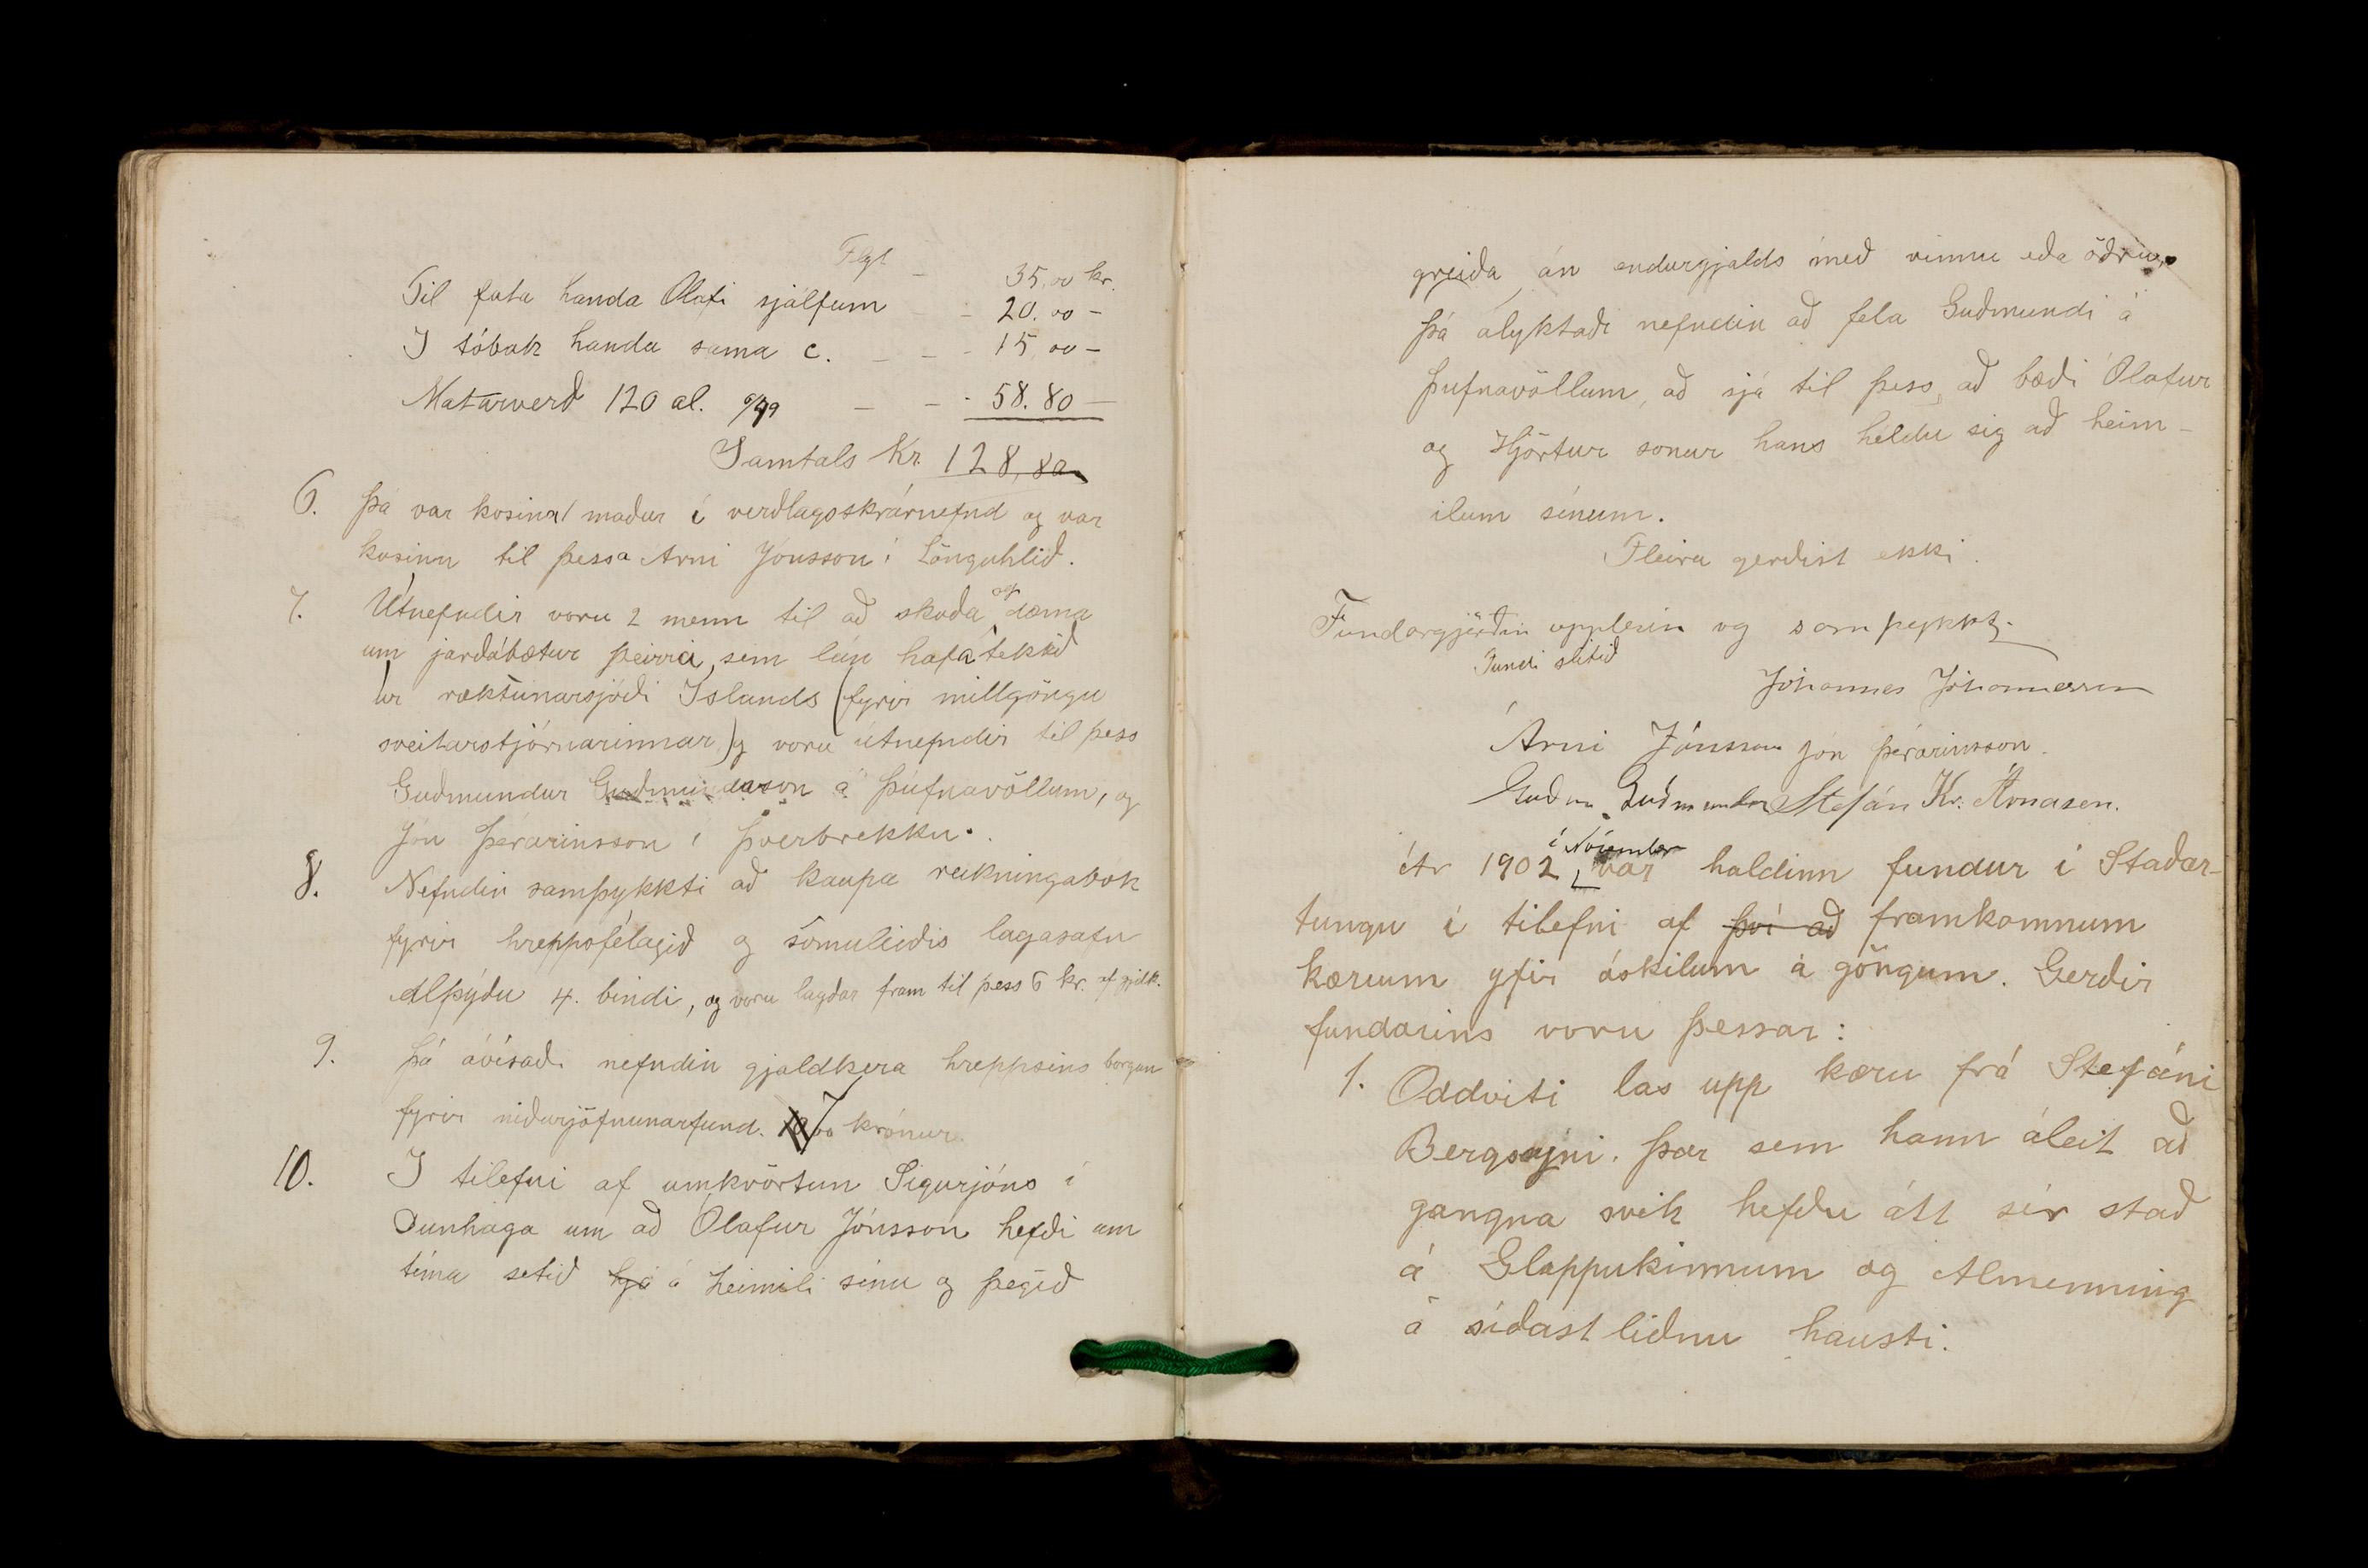 Flgt - 35,00 kr.
Til fata handa Olafi sjálfum - 20.00 -
I tóbak handa sama c. - - - 15,00 -
Matarverð 120 al. 0/49 - - - 58.80 -
Samtals Kr. 128,80
6. Þá var kosinn 1 maður í verðlagsskrárnefnd og var
kosinn til þessa Arni Jónsson í Lönguhlið.
7. Útnefndir voru 2 menn til að skoða og dæma
um jarðabætur þeirra, sem lán hafa tekið
úr ræktunarsjóði Islands (fyrir millgöngu
sveitarstjórnarinnar) og voru útnefndir til þess
Guðmundur Guðmundsson á Þúfnavöllum, og
Jón Þórarinsson í Þverbrekku.
8. Nefndin samþykkti að kaupa reikningabók
fyrir hreppsfélagið og sömuleiðis lagasafn
Alþýðu 4. bindi, og voru lagðar fram til þess 6 kr. af gjldk.
9. Þá ávísaði nefndin gjaldkera hreppsins borgun
fyrir niðurjöfnunarfund. 7 krónur.
10. I tilefni af umkvörtun Sigurjóns í
Dunhaga um að Ólafur Jónsson hefði um
tíma setið hjá á heimili sínu og þegið
greiða án endurgjalds með vinnu eða öðru,
þá ályktaði nefndin að fela Guðmundi á
Þúfnavöllum, að sjá til þess, að bæði Ólafur
og Hjörtur sonur hans héldu sig að heim-
ilum sínum.
Fleira gerðist ekki.
Fundargjörðin upplesin og samþykkt.
Fundi slitið
Jóhannes Jóhannesson
Árni Jónsson Jón Þórarinsson.
Guðm. Guðmundss Stefán Kr. Árnason.
Ár 1902 í Nóvember var haldinn fundur í Staðar-
tungu í tilefni af því að framkomnum
kærum yfir óskilum á göngum. Gerðir
fundarins voru þessar:
1. Oddviti las upp kæru frá Stefáni
Bergssyni. Þar sem hann áleit að
gangna svik hefðu átt sér stað
á Glappukinnum og Almenning
á síðast liðnu hausti.